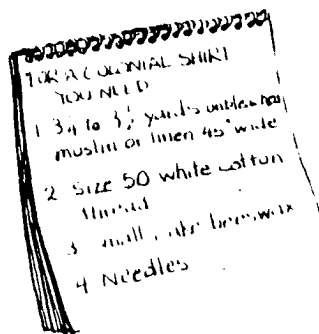 FOR A COLONIAL SHIRT
YOU NEED
1. 3¼ to 3½ yards unbleached
muslin or linen 45" wide
2 Size 50 white cotton
thread
3 small cake beeswax
4 Needles